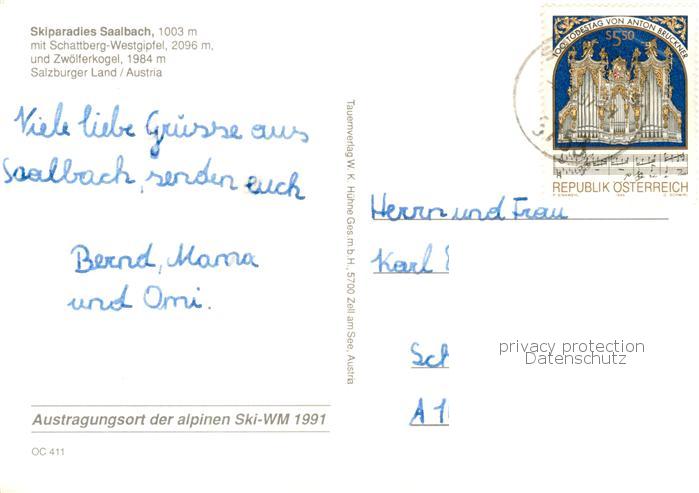 Skiparadies Saalbach, 1003 m
mit Schattberg-Westgipfel, 2096 m,
und Zwölferkogel, 1984 m
Salzburger Land / Austria
Viele liebe Grüsse aus
Saalbach, senden euch
Bernd, Mama
und Omi.
Austragungsort der alpinen Ski-WM 1991
OC 411
Tauernverlag W. K. Hühne Ges.m.b.H., 5700 Zell am See, Austria
100. TODESTAG VON ANTON BRUCKNER
S5.50
REPUBLIK ÖSTERREICH
Herrn und Frau
Karl
Sch
A 1
privacy protection
Datenschutz